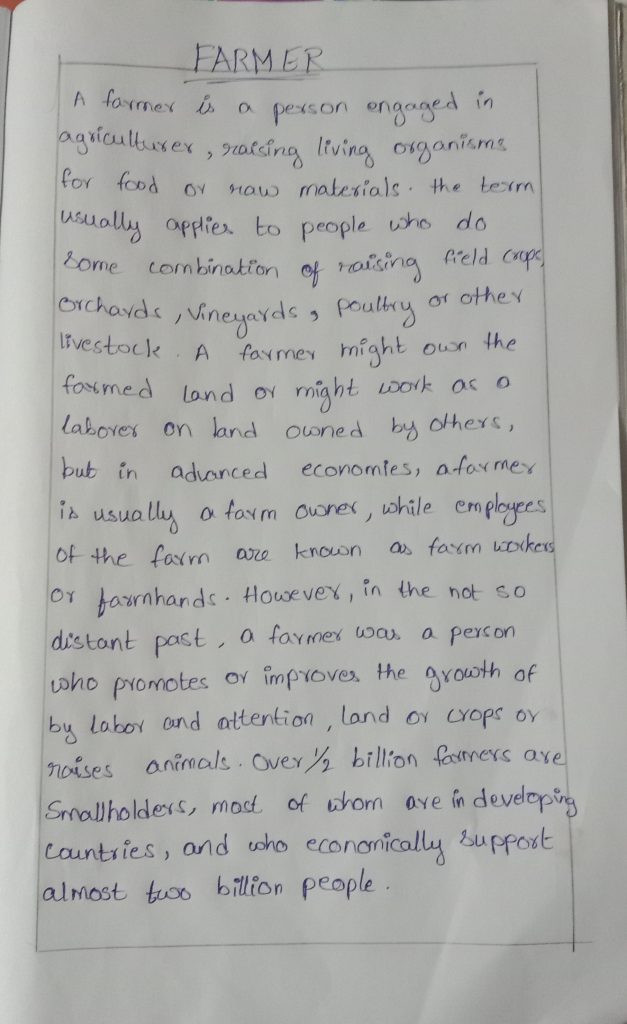 FARMER
A farmer is a person engaged in
agriculturer, raising living organisms
for food or raw materials. the term
usually applies to people who do
some combination of raising field crops,
orchards, vineyards, poultry or other
livestock. A farmer might own the
farmed land or might work as a
laborer on land owned by others,
but in advanced economies, a farmer
is usually a farm owner, while employees
of the farm are known as farm workers
or farmhands. However, in the not so
distant past, a farmer was a person
who promotes or improves the growth of
by labor and attention, land or crops or
raises animals. Over 1/2 billion farmers are
Smallholders, most of whom are in developing
Countries, and who economically support
almost two billion people.